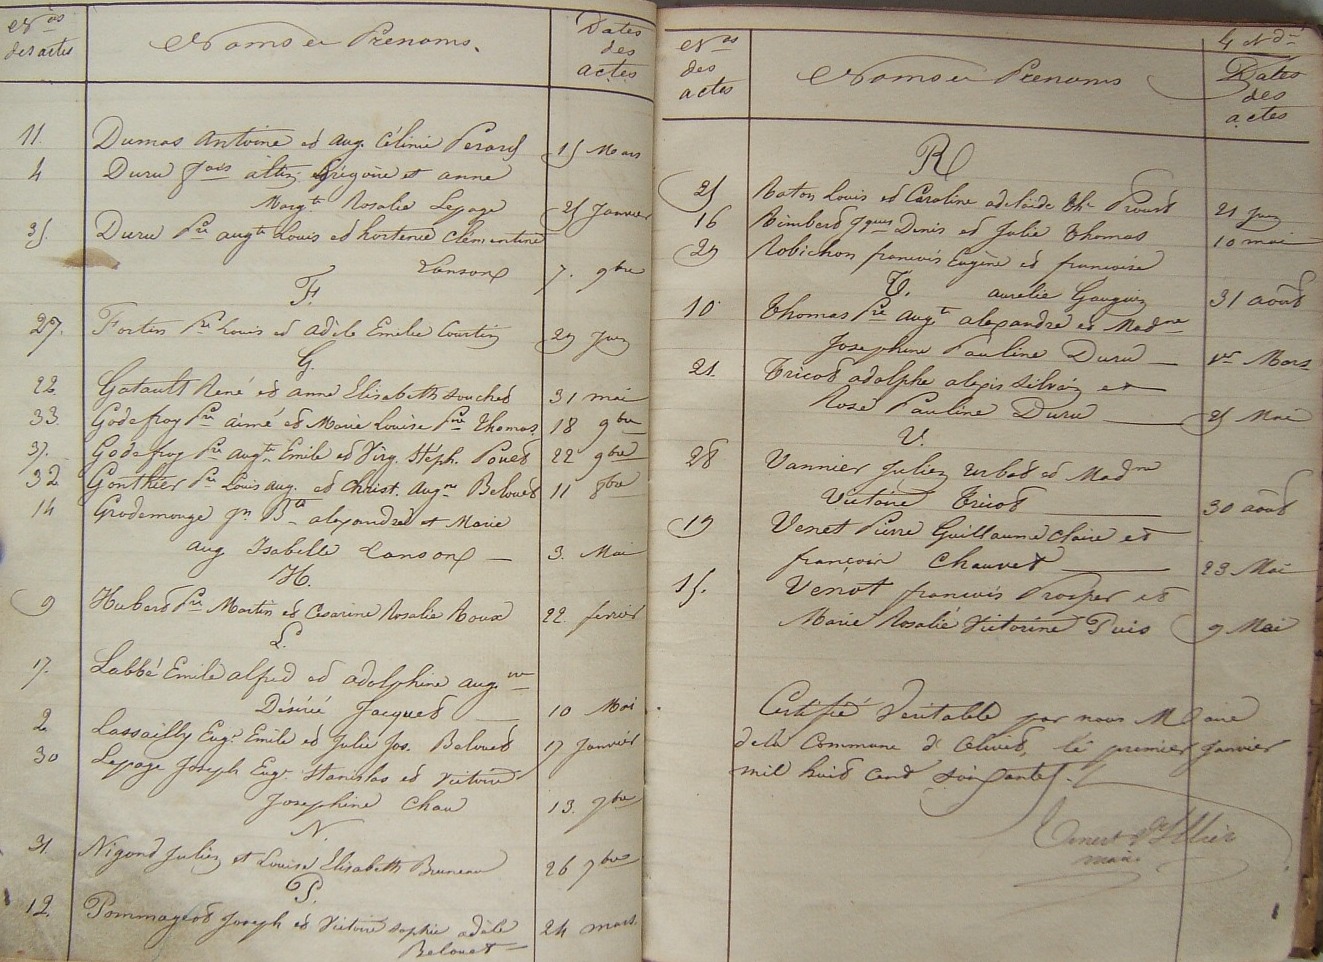 Nos des actes
Noms et Prénoms.
Dates des actes
11 Dumas Antoine et Aug. Célinie Perard 15 Mars
4 Duru fois altin grégoire et anne
Margte Rosalie Lepage 25 Janvier
35. Duru Pre augte Louis et hortence Clémentine
Lanson 7. 9bre
F.
27. Fortin Pre Louis et adèle Emélie Courtin 29 Juin
G.
22. Gatault René et anne Elisabeth Souchet 31 mai
33. Godefroy Pre aimé et Marie Louise Pne Thomas 18 9bre
37. Godefroy Pre augte Emile et Virg. Stéph. Pouet 22 9bre
32 Gonthier Pre Louis aug. et Christ. Augne Belouet 11 8bre
14 Grodemouge Jn Bte alexandre et Marie
aug Isabelle Lanson 3. Mai
H.
9 Hubert Pre Martin et Cesarine Rosalie Roux 22 fevrier
L.
17. Labbé Emile alfred et adolphine aug.ne
Désirée Jacquet 10 Mai
2 Lassailly Eugne Emile et Julie Jos. Belouet 17 Janvier
30 Lepage Joseph Eugne Stanislas et Victoire
Josephine Chau 13. 7bre
N.
31 Nigond Julien et Louise Elisabeth Bruneau 26 7bre
P.
12. Pommageot Joseph et Victoire Sophie adèle 24 mars
Belouet
Nos des actes
Noms et Prénoms
Dates des actes
R
25 Raton Louis et Caroline adelaïde Thse Prout 21 Juin
16 Rimbert Jques Denis et Julie Thomas 10 mai
29 Robichon francois Eugène et francoise
aurelie Gauguin 31 août
T.
10 Thomas Pre Augte alexandre et Madne
Josephine Pauline Duru 1er Mars
21. Tricot adolphe alexis Silvain et
Rose Pauline Duru 25 Mai
V.
28 Vannier Julien Urbat et Madne
Victoire Tricot 30 août
19 Venet Pierre Guillaume Claire et
françoise Chauvet 23 Mai
15. Venot francois Prosper et
Marie Rosalie Victorine Puis 9 Mai
Certifié Veritable par nous Maire
de la Commune d'Olivet, le premier Janvier
mil huit cent soixante.
Ernest d'Illiers
maire